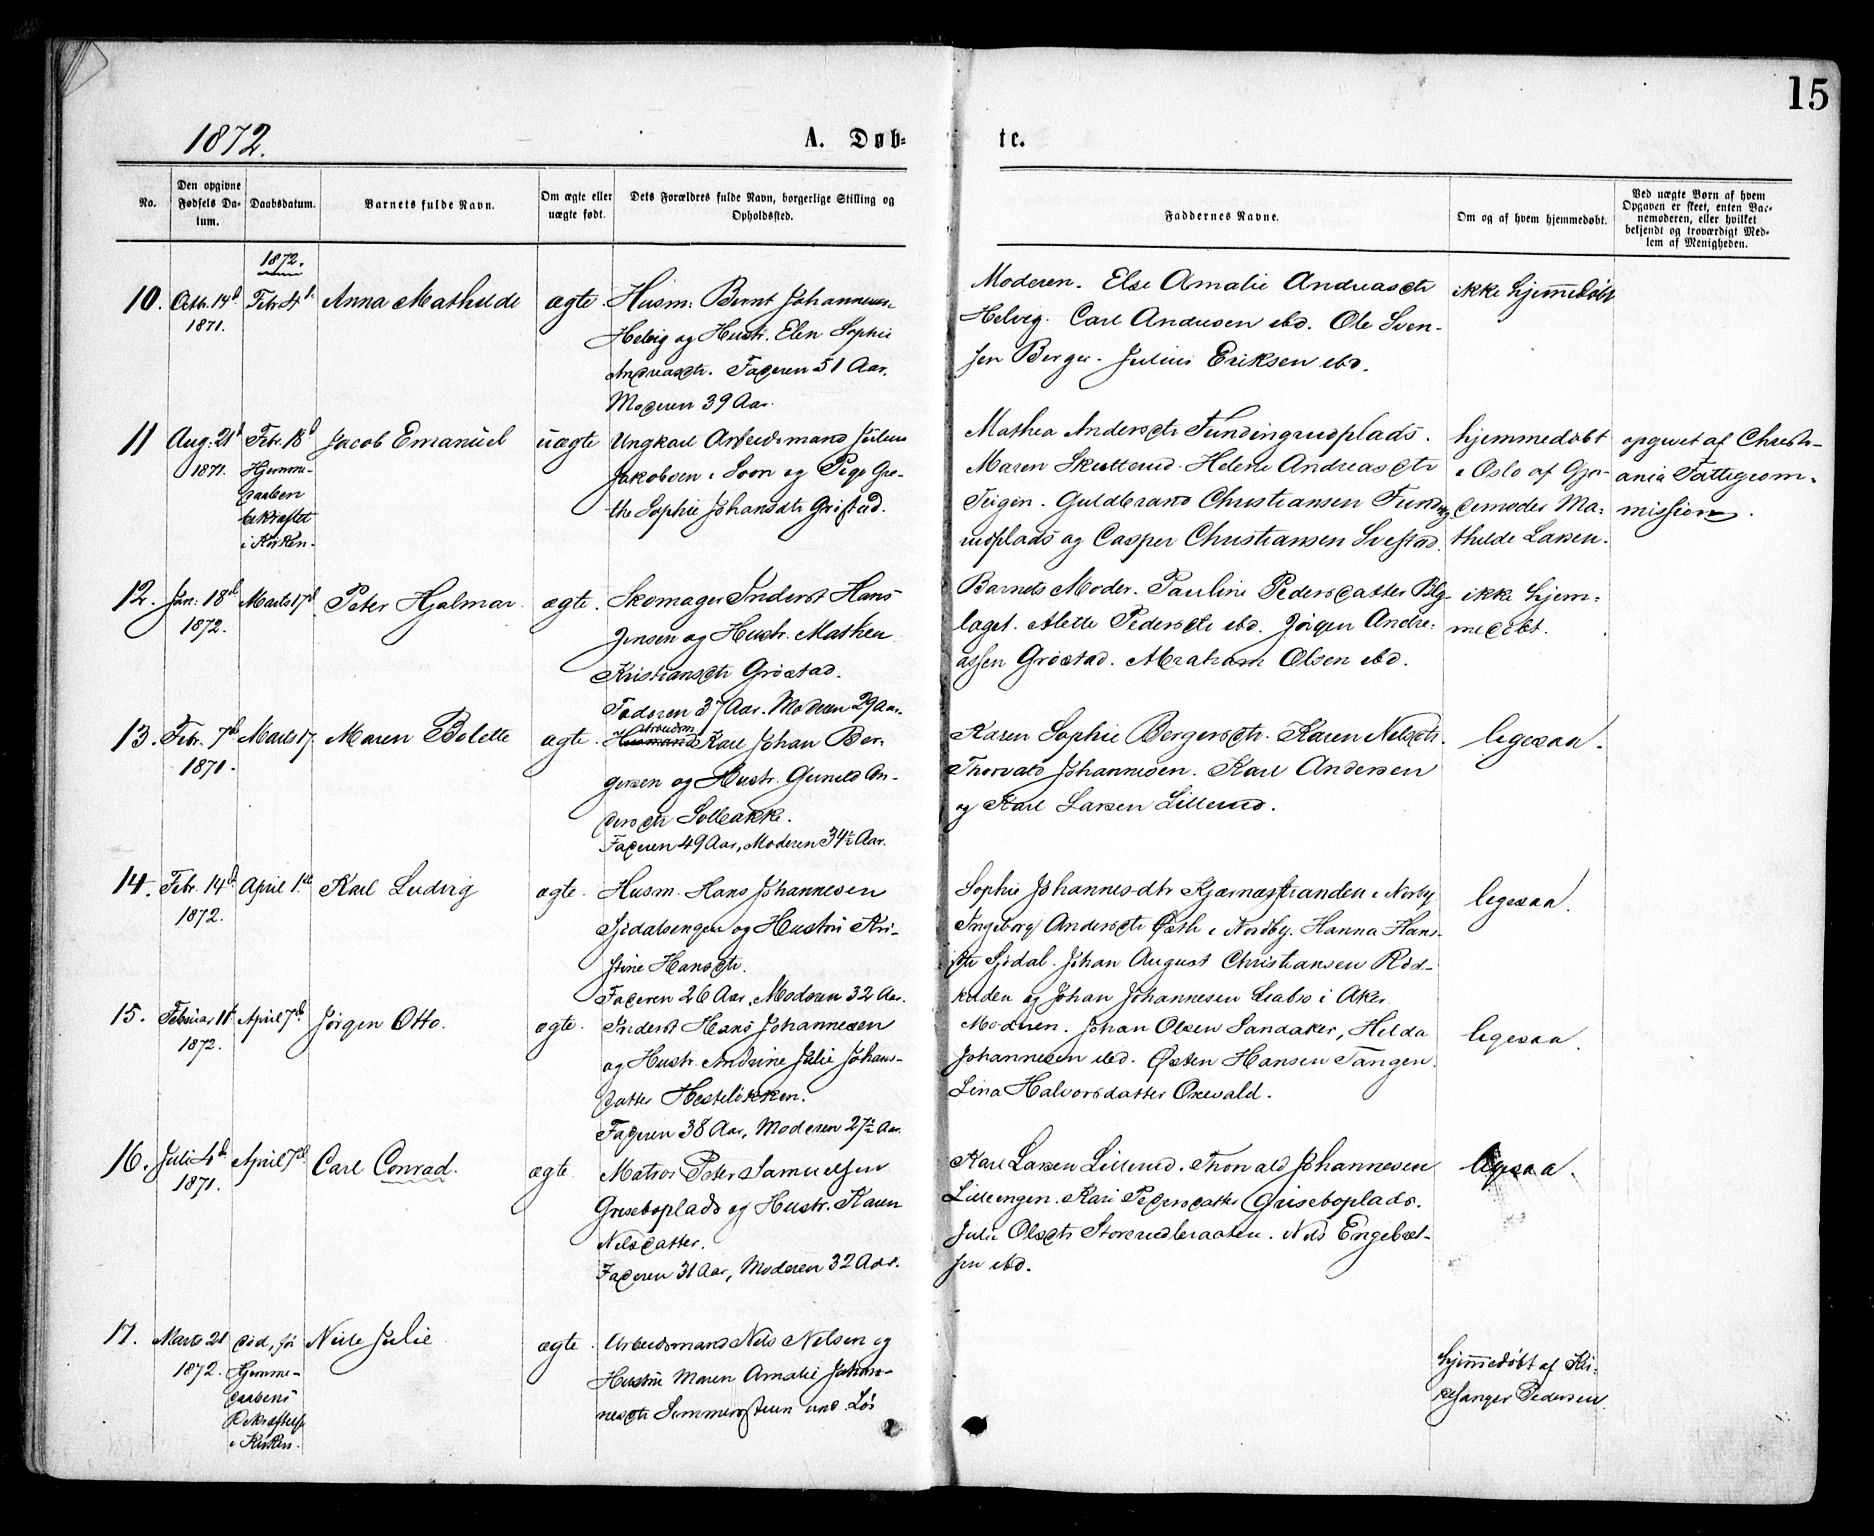 15
1872.
A. Døb-
te.
No.
Den opgivne Fødsels Da-
tum.
Daabsdatum.
Barnets fulde Navn.
Om ægte eller
uægte født.
Dets Forældres fulde Navn, borgerlige Stilling og
Opholdssted.
Faddernes Navne.
Om og af hvem hjemmedøbt.
Ved uægte Børn af hvem
Opgaven er skeet, enten Bar-
nemoderen, eller hvilket
bekjendt og troværdigt Med-
lem af Menigheden.
1872.
10. Octbr. 14d Febr. 4d Anna Mathilde ægte. Husm. Bernt Johannesen
1871.
Helvig og Hustr. Elen Sophie
Andreasdtr. Faderen 51 Aar.
Moderen 39 Aar.
Moderen. Else Amalie Andreasdtr
Helvig. Carl Andersen ibd. Ole Sven-
sen Berger. Julius Eriksen ibd.
ikke hjemmedøbt
11 Aug. 21d Febr. 18d Jacob Emanuel uægte Ungkarl Arbeidsmand Julius
1871.
Hjemme-
daaben
bekræftet
i Kirken.
Jakobsen i Soon og Pige Gre-
the Sophie Johansdtr Gristad.
Mathea Andersdtr Fundingrudplads.
Maren Skutterud. Helene Andreasdtr
Teigen. Guldbrand Christiansen Funding-
rudplads og Casper Christiansen Svestad.
hjemmedøbt
i Oslo af Gjor-
demoder Ma-
thilde Larsen.
opgivet af Christi-
ania Fattigcom-
mission.
12. Jan. 18d Marts 17d Peter Hjalmar. ægte. Skomager Inderst Hans
1872.
Jensen og Hustr. Mathea
Kristiansdtr Grøstad.
Faderen 37 Aar. Moderen 29 Aar.
Barnets Moder. Pauline Pedersdatter Blg-
laget. Alette Pedersdtr ibd. Jørgen Andre-
assen Grøstad. Abraham Olsen ibd.
ikke hjem-
medøbt.
13. Febr. 7d Marts 17. Maren Bolette ægte. Husmand Karl Johan Ber-
Arbeidsm
1871.
gersen og Hustr. Gunild An-
dersdtr Solbakke.
Faderen 49 Aar, Moderen 34½ Aar.
Karen Sophie Bergersdtr. Karen Nelsdtr.
Thorvald Johannesen. Karl Andersen
og Karl Larsen Lillerud.
ligesaa.
14. Febr. 14d April 1ste Karl Ludvig ægte. Husm. Hans Johannesen
1872.
Sjødalsengen og Hustru Kri-
stine Hansdtr.
Faderen 26 Aar, Moderen 32 Aar.
Sophie Johannesdtr Kjærnæsstranden i Norby
Ingeborg Andersdtr Østli i Nordby. Hanna Hans-
dtr Sjødal. Johan August Christiansen Rød-
kilden og Johan Johannesen i Aker
ligesaa.
15. Februar 11t April 7d Jørgen Otto. ægte. Inderst Hans Johannesen
1872.
og Hustr. Andrine Julie Johans-
datter Hesteløkken.
Faderen 38 Aar, Moderen 27½ Aar.
Moderen. Johan Olsen Sandaker, Hilda
Johannesen ibd. Østen Hansen Tangen.
Lina Halvorsdatter Oxevald.
ligesaa.
16. Juli 4d April 7d Carl Conrad. ægte. Matros Peter Samuelsen
1871.
Griseboplads og Hustr. Karen
Nelsdatter.
Faderen 31 Aar, Moderen 32 Aar.
Karl Larsen Lillerud. Thorvald Johannesen
Lilleengen. Kari Pedersdatter Griseboplads.
Julie Olsdtr Storrudbraaten. Nils Engebret-
sen ibd.
ligesaa.
17. Marts 21 død, før Neile Julie ægte. Arbeidsmand Nels Nelsen og
1872. Hjemme-
daabens
Bekræftelse
i Kirken.
Hustru Maren Amalie Johan-
nesdtr Simmersteen
hjemmedøbt af Kir-
kesanger Pedersen.